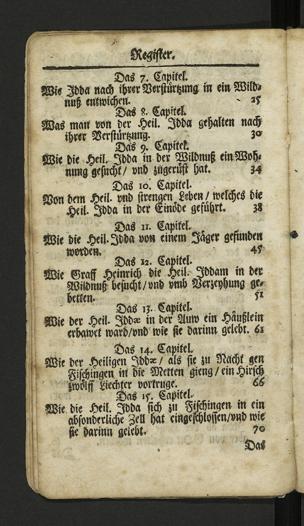 Register.
Das 7. Capitel.
Wie Idda nach ihrer Verstürtzung in ein Wild-
nuß entwichen. 25
Das 8. Capitel.
Was man von der Heil. Idda gehalten nach
ihrer Verstürtzung. 30
Das 9. Capitel.
Wie die Heil. Idda in der Wildnuß ein Woh-
nung gesucht / vnd zugerüst hat. 34
Das 10. Capitel.
Von dem Heil. vnd strengen Leben / welches die
Heil. Idda in der Einöde geführt. 38
Das 11. Capitel.
Wie die Heil. Idda von einem Jäger gefunden
worden. 45
Das 12. Capitel.
Wie Graff Heinrich die Heil. Iddam in der
Wildnuß besucht / vnd vmb Verzeyhung ge-
betten. 51
Das 13. Capitel.
Wie der Heil. Iddæ in der Auw ein Häußlein
erbawet ward / vnd wie sie darinn gelebt. 61
Das 14. Capitel.
Wie der Heiligen Iddæ / als sie zu Nacht gen
Fischingen in die Metten gieng / ein Hirsch
zwölff Liechter vortruge. 66
Das 15. Capitel.
Wie die Heil. Idda sich zu Fischingen in ein
absonderliche Zell hat eingeschlossen / vnd wie
sie darinn gelebt. 70
Das